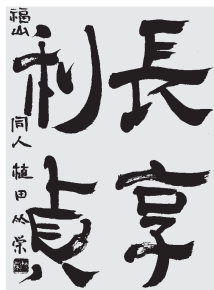 長享
利貞
福山
同人
植田
竹栄